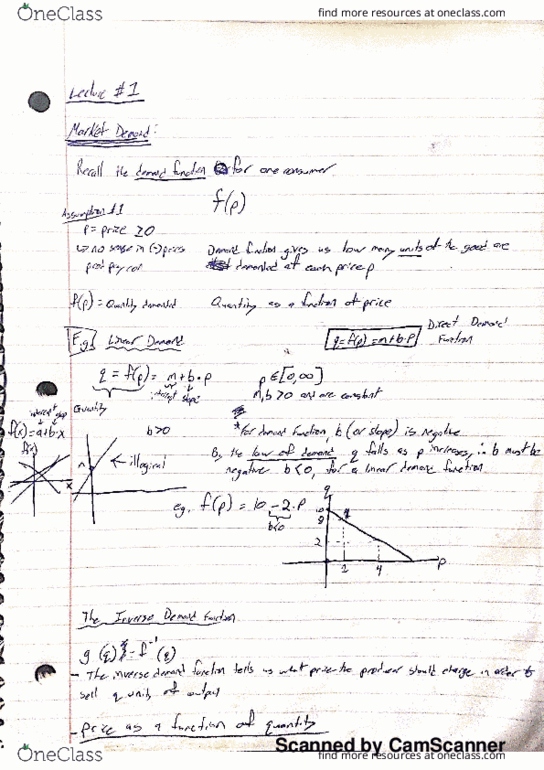 OneClass
find more resources at oneclass.com
Lecture #1
Market Demand:
Recall the demand function for one consumer
f(p)
Assumption #1
p = price ≥0
↳ no sense in (-) prices
Demand function gives us how many units of the good are
demanded at each price p
f(p) = Quantity demanded
Quantity as a function of price
E.g. Linear Demand
q = f(p) = m+b·p
Direct Demand
Function
q = f(p) = m+b·p
p∈[0,∞]
intercept slope
m,b >0 and are constant
Quantity
intercept slope
f(x)=a+b·x
f(x)
x
b>0
← illogical
*For demand function, b (or slope) is negative
By the law of demand q falls as p increases, ∴ b must be
negative b<0, for a linear demand function
eg. f(p) = 10 - 2·p
b<0
q
10
8
2
1
4
p
The Inverse Demand Function
g(q) = f⁻¹(q)
- The inverse demand function tells us what price the producer should charge in order to
sell q units of output
- Price as a function of quantity
Scanned by CamScanner
OneClass
find more resources at oneclass.com